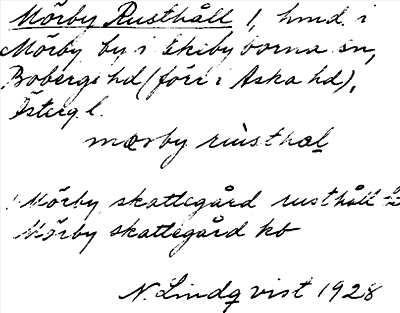 Mörby Rusthåll 1, hmd. i
Mörby by i Ekebyborna sn,
Bobergs hd (förr i Aska hd),
Österg. l.
mœrby rùsthal
Mörby skattegård rusthåll
Mörby skattegård kb
N. Lindqvist 1928